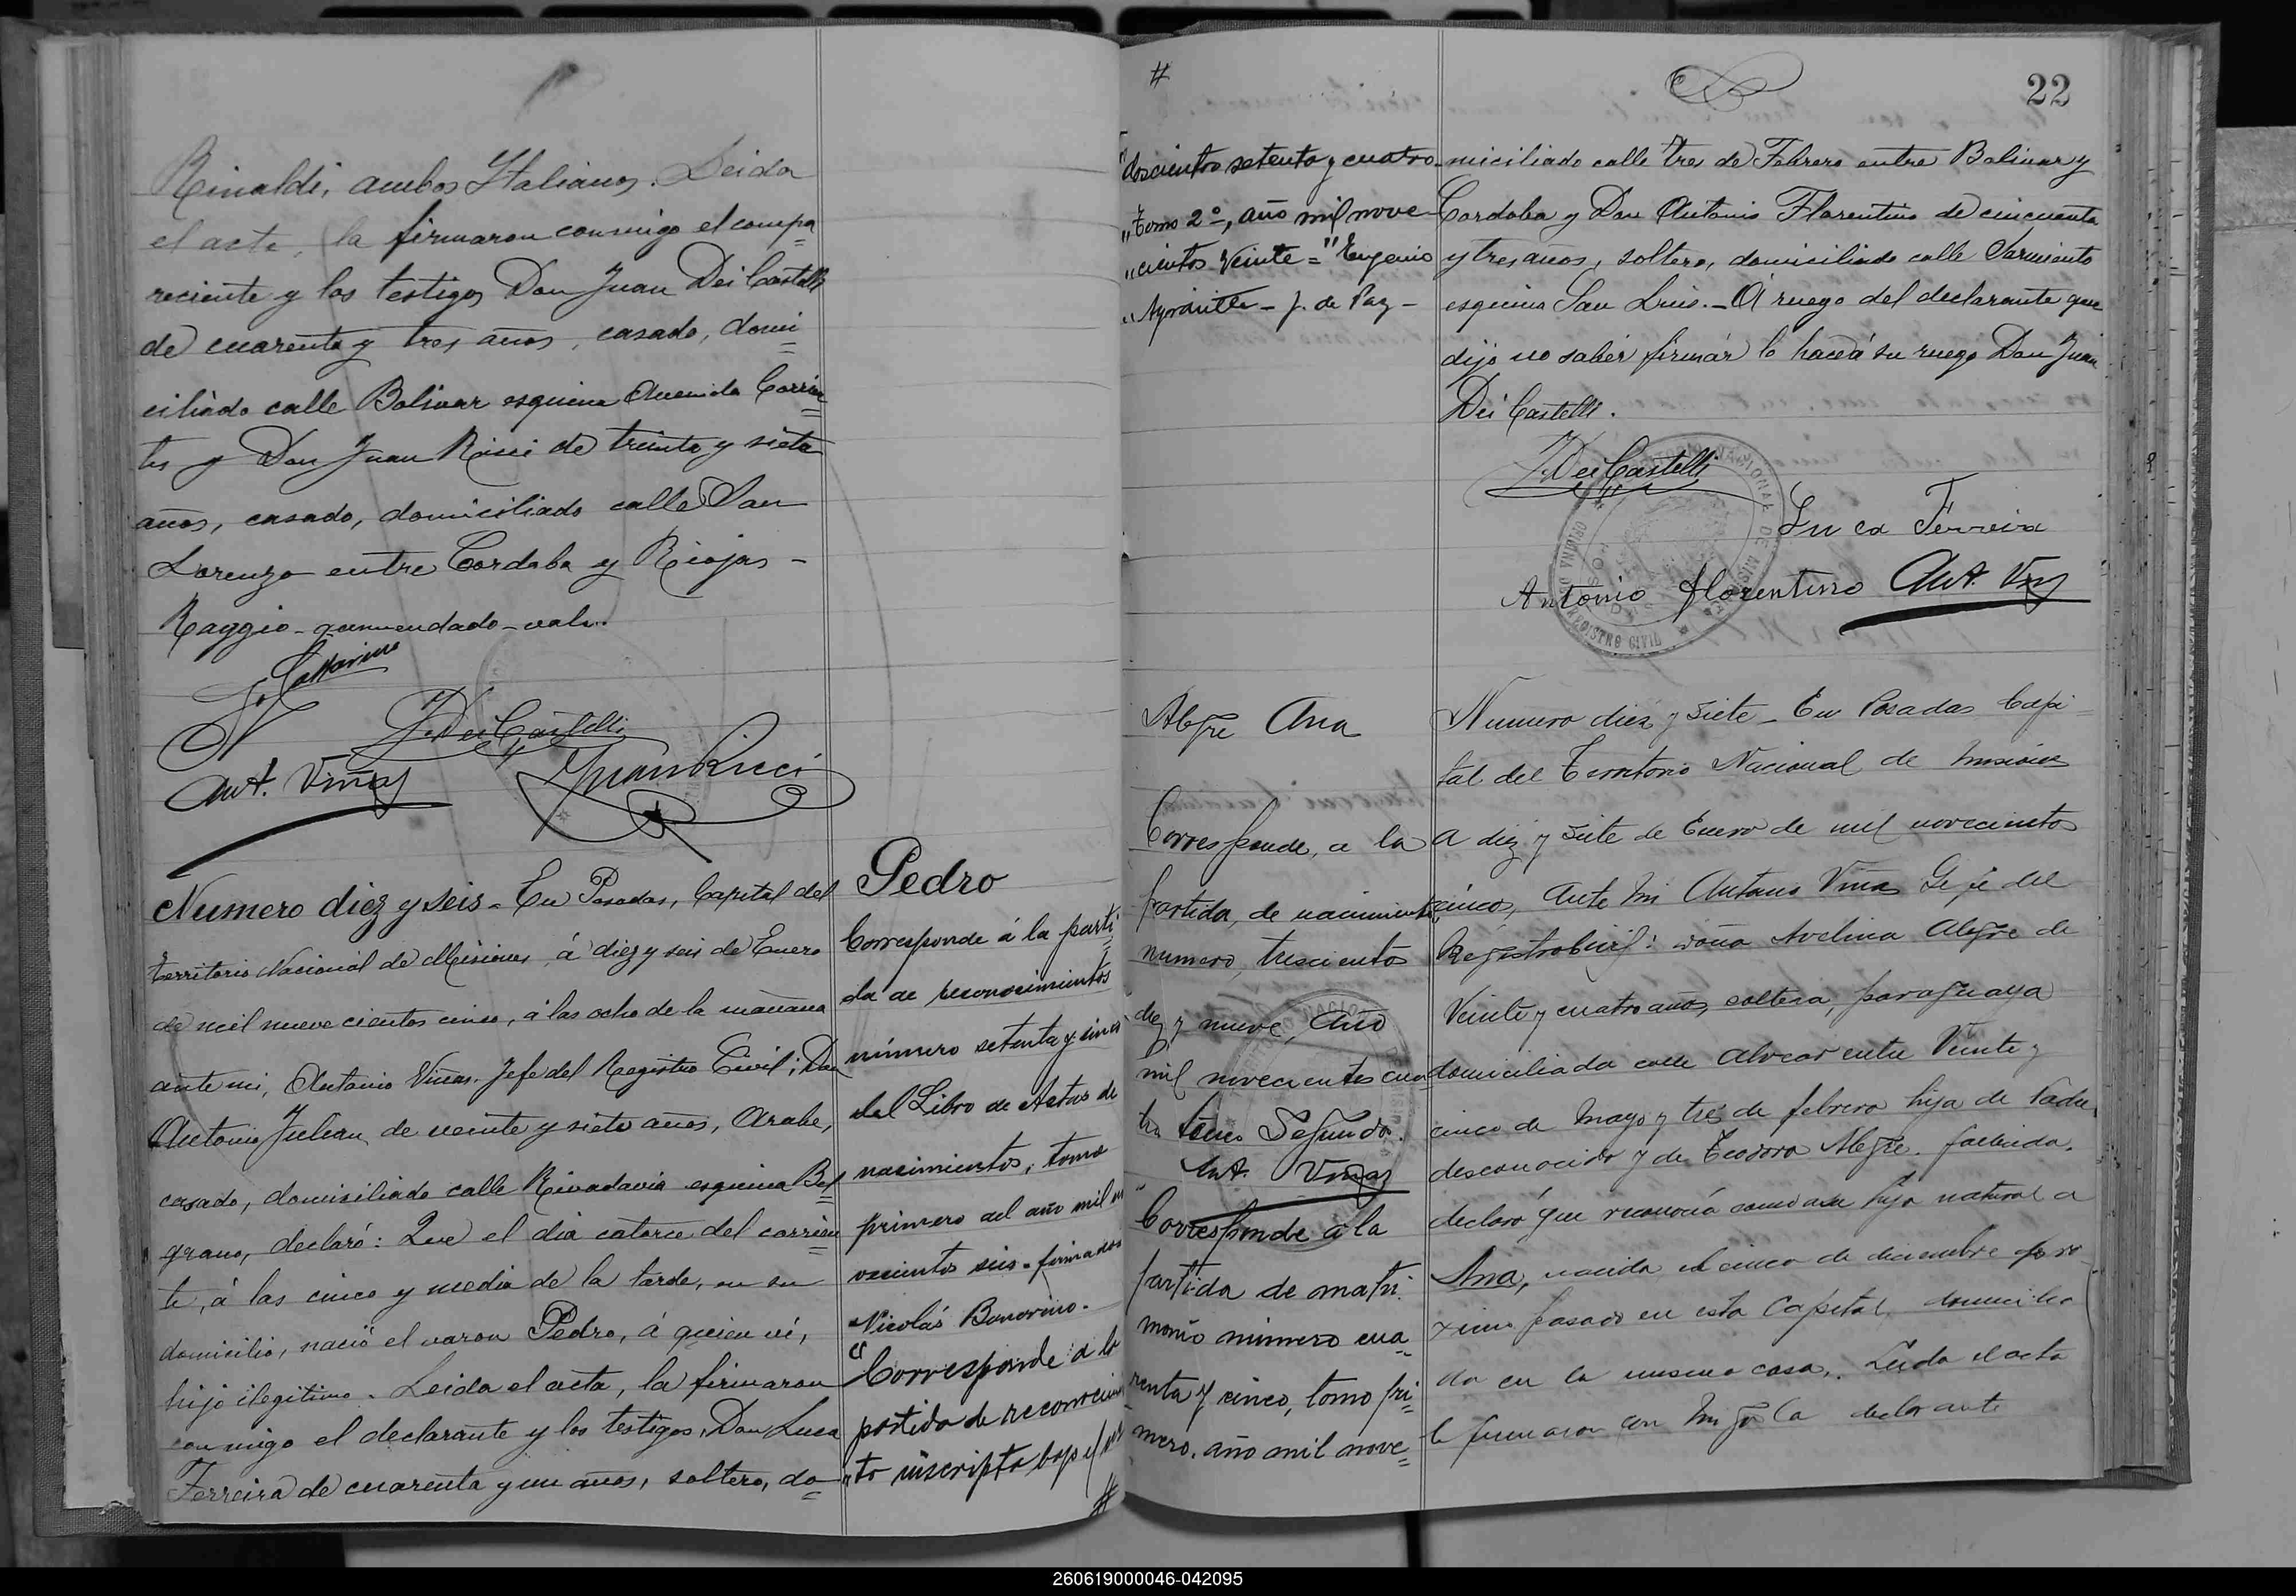 Rinaldi, ambos Italianos. Leida
el acta, la firmaron conmigo el compa=
reciente y los testigos Don Juan Dei Castelli
de cuarenta y tres años, casado, domi=
ciliado calle Bolivar esquina Avenida Corrien=
tes y Don Juan Ricci de treinta y siete
años, casado, domiciliado calle San
Lorenzo entre Cordoba y Rioja. -
Raggio - enmendado - vale.
J. Dei Castelli
Ant. Viñas
Juan Ricci
Numero diez y seis - En Posadas, Capital del
territorio Nacional de Misiones á diez y seis de Enero
de mil nueve cientos cinco, á las ocho de la mañana
ante mi, Antonio Viñas. Jefe del Registro Civil; Don
Antonio Julian de veinte y siete años, Arabe,
casado, domiciliado calle Rivadavia esquina Bel=
grano, declaró: Que el dia catorce del corrien=
te, á las cinco y media de la tarde, en su
domicilio, nació el varon Pedro, á quien ví,
hijo ilegitimo. Leida el acta, la firmaron
conmigo el declarante y los testigos, Don Luca
Ferreira de cuarenta y un años, soltero, do=
Pedro
Corresponde á la parti=
da de reconocimientos
número setenta y cinco
del Libro de Actas de
nacimientos, tomo
primero del año mil no
vecientos seis - firmado
Nicolás Bonorino.
"Corresponde a la
partida de reconocimien
"to inscripta bajo el
#
#
22
"doscientos setenta y cuatro
"tomo 2º, año mil nove
"cientos veinte = "Eugenio
" - J. de Paz -
miciliado calle tres de Febrero entre Bolivar y
Cordoba y Don Antonio Florentino de cincuenta
y tres años, soltero, domiciliado calle Sarmiento
esquina San Luis. - A ruego del declarante que
dijo no saber firmár lo hace á su ruego Don Juan
Dei Castelli.
J. Dei Castelli
Luca Ferreira
Antonio Florentino Ant. Viñas
REGISTRO CIVIL
Alegre Ana
Corresponde, a la
partida, de nacimiento
numero, trescientos
diez y nueve, año
mil novecientos cua
tro tomo Segundo.
Ant. Viñas
"Corresponde a la
partida de matri=
monio número cua=
renta y cinco, tomo pri=
mero, año mil nove=
Numero diez y siete - En Posadas Capi=
tal del Territorio Nacional de Misiones
a diez y siete de Enero de mil novecientos
cinco, Ante mi Antonio Viñas Gefe del
Registro Civil: doña Avelina Alegre de
Veinte y cuatro años, soltera, paraguaya
domiciliada calle Alvear entre Veinte y
cinco de Mayo y tres de febrero hija de Padre
desconocido y de Teodora Alegre. fallecida.
declaró que reconocía como a su hija natural a
Ana, nacida el cinco de diciembre pro
ximo pasado en esta Capital domicilia
da en la misma casa. Leida el acta
la firmaron con migo la declarante
260619000046-042095